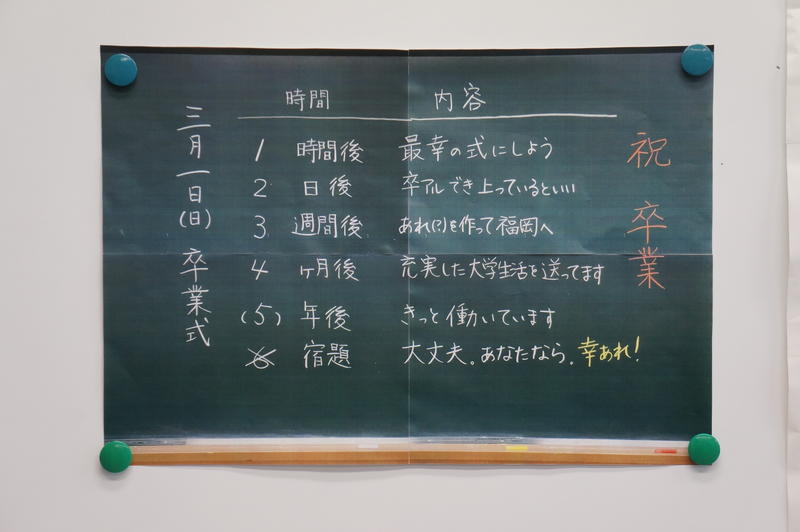 祝 卒業
時間 内容
1 時間後 最幸の式にしよう
2 日後 卒アルでき上っているといい
3 週間後 あれ(?)を作って福岡へ
4 ヶ月後 充実した大学生活を送ってます
(5) 年後 きっと働いています
6 宿題 大丈夫。あなたなら。幸あれ!
三月一日(日) 卒業式